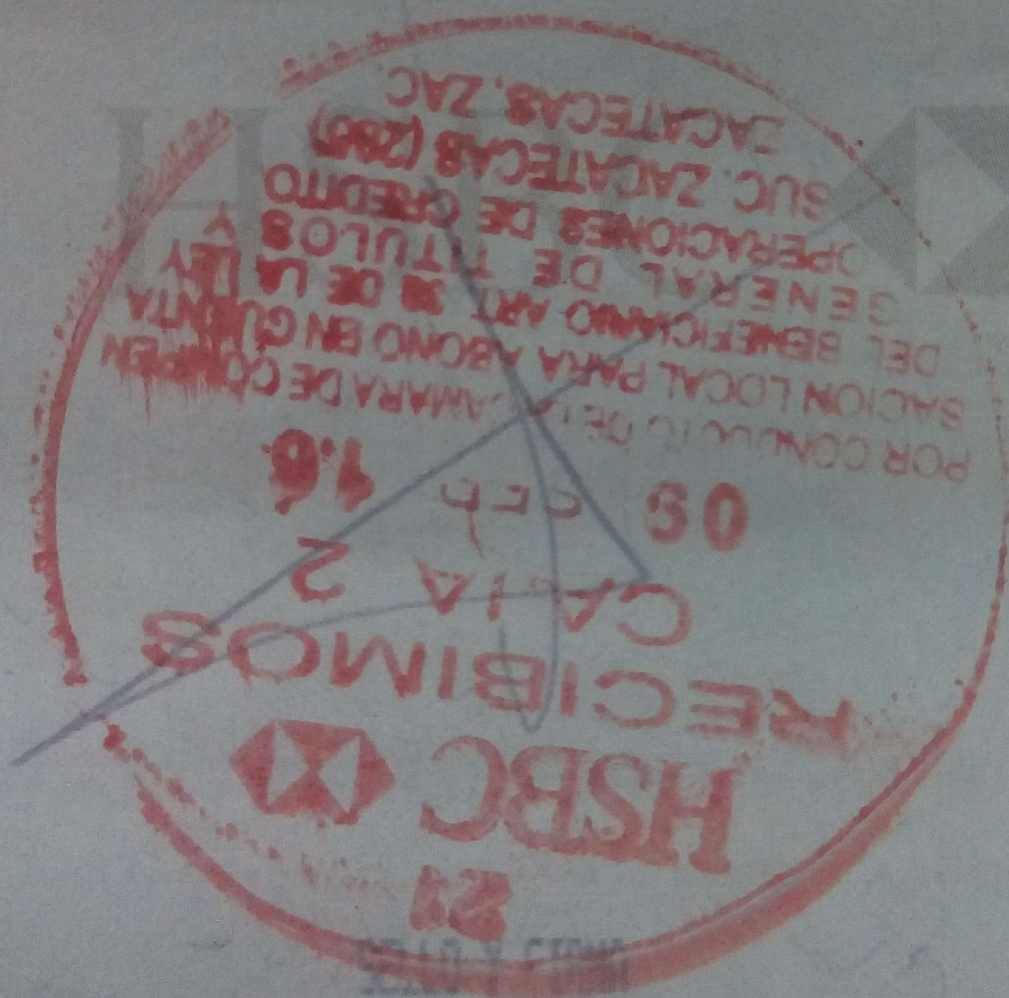 SELLO Y FIRMA
21
HSBC
RECIBIMOS
CAJA 2
09 FEB 16
POR CONDUCTO DE LA CAMARA DE COMPEN
SACION LOCAL PARA ABONO EN CUENTA
DEL BENEFICIARIO ART 39 DE LA LEY
GENERAL DE TITULOS Y
OPERACIONES DE CREDITO
SUC. ZACATECAS
ZACATECAS, ZAC